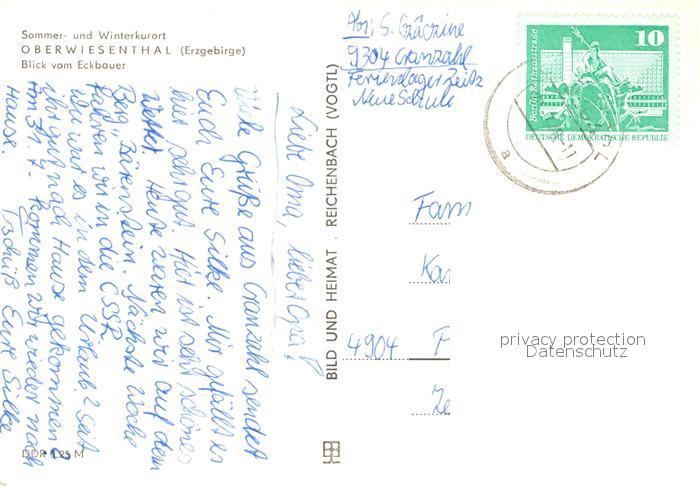 Sommer- und Winterkurort
OBERWIESENTHAL (Erzgebirge)
Blick vom Eckbauer
Liebe Oma, lieber Opa!
Viele Grüße aus Cranzahl sendet
Euch Eure Silke. Mir gefällt es
hier sehr gut. Hier ist sehr schönes
Wetter. Heute waren wir auf dem
Berg „Bärenstein. Nächste Woche
fahren wir in die CSSR.
Wie war es in dem Urlaub? Seit
ihr gut nach Hause gekommen?
Am 31.7. kommen wir wieder nach
Hause.
Tschüß Eure Silke
DDR 1,25 M
BILD UND HEIMAT . REICHENBACH (VOGTL)
Abs: S.
9304 Cranzahl
Ferienlager Zeiss
Neue Schule
Berlin-Rathausstraße
10
DEUTSCHE DEMOKRATISCHE REPUBLIK
a
Fam
Ka
4904 P
Ze
privacy protection
Datenschutz